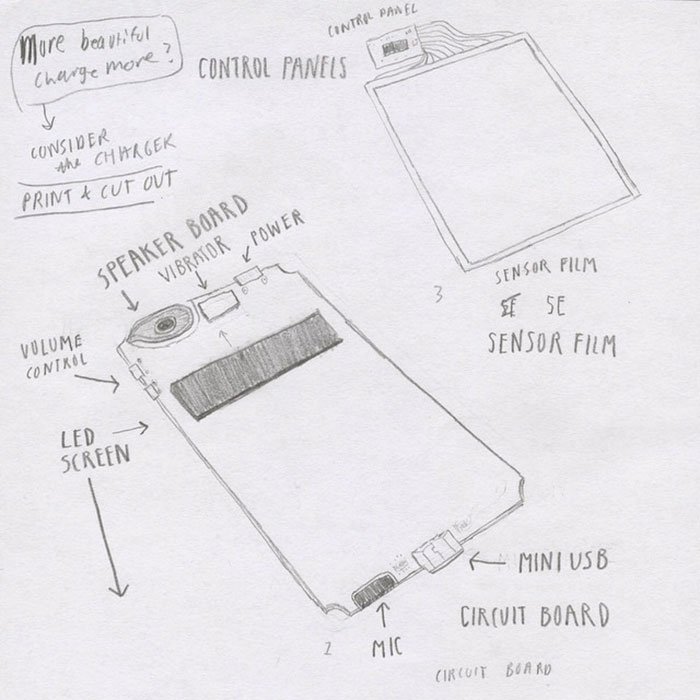 More beautiful
charge more?
CONSIDER
the CHARGER
PRINT & CUT OUT
CONTROL PANELS
CONTROL PANEL
SENSOR FILM
3
SE SE
SENSOR FILM
SPEAKER BOARD
VIBRATOR
POWER
VOLUME
CONTROL
LED
SCREEN
MINI USB
CIRCUIT BOARD
MIC
2
CIRCUIT BOARD